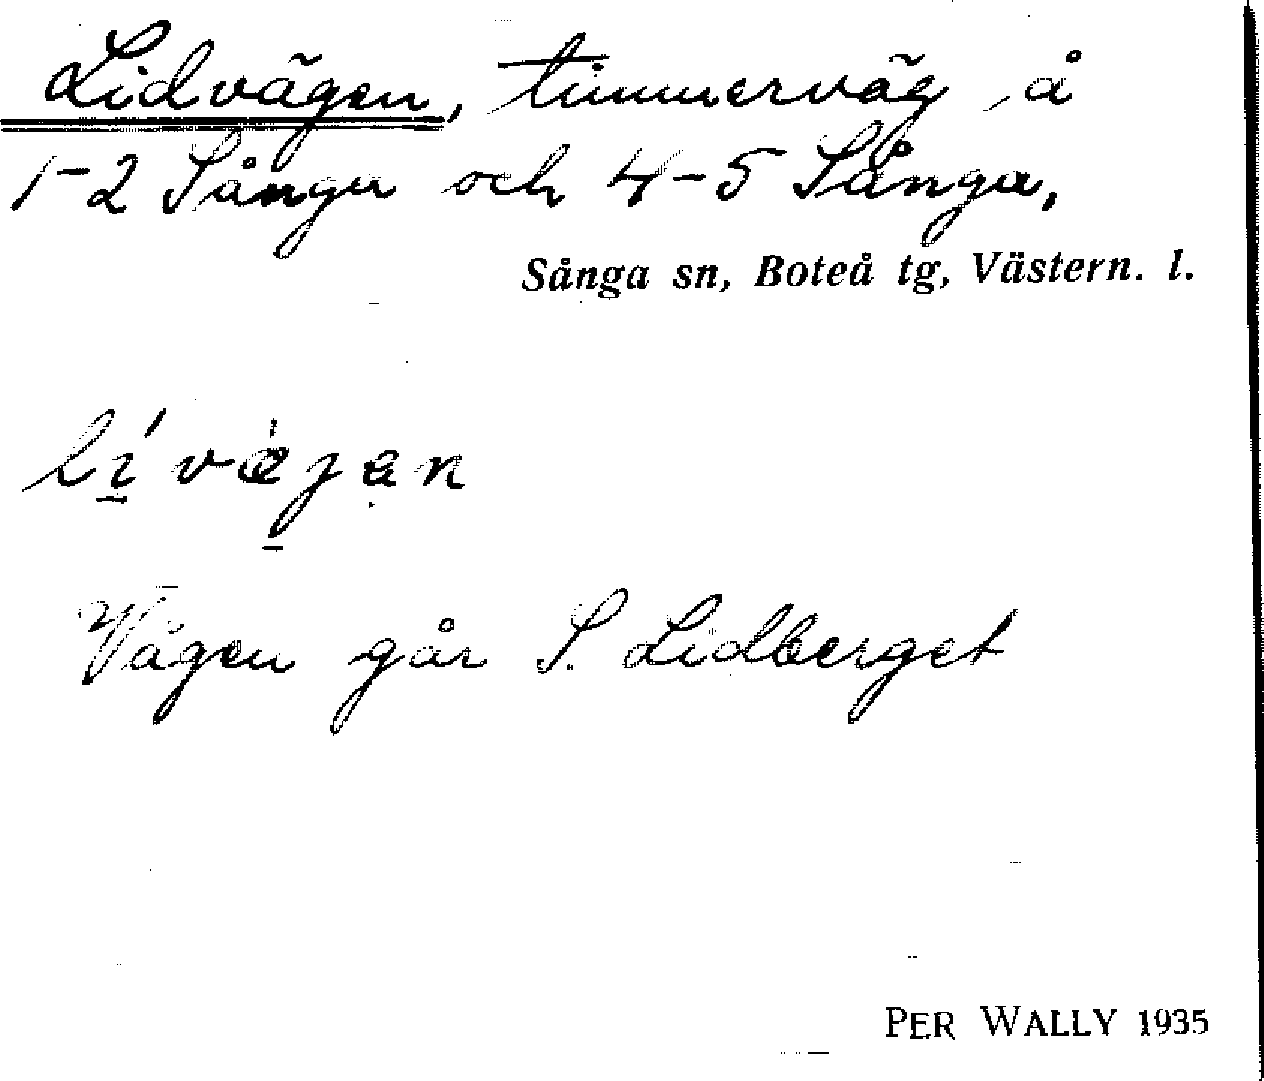 Lidvägen, timmerväg å
1-2 Sånga och 4-5 Sånga,
Sånga sn, Boteå tg, Västern. l.
lı̱́ vὰȷ̱ ạn
Vägen går S. Lidberget
PER WALLY 1935